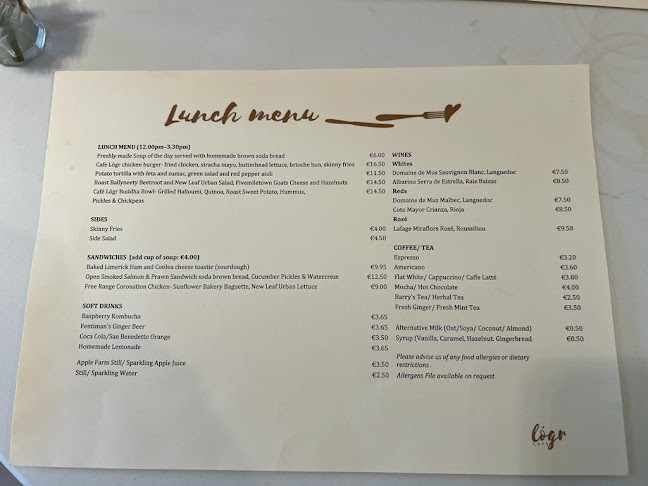 Lunch menu
LUNCH MENU (12.00pm-3.30pm)
Freshly made Soup of the day served with homemade brown soda bread €6.00
Cafe Lógr chicken burger- fried chicken, siracha mayo, butterhead lettuce, brioche bun, skinny fries €16.50
Potato tortilla with feta and sumac, green salad and red pepper aioli €11.50
Roast Ballyneety Beetroot and New Leaf Urban Salad, Fivemiletown Goats Cheese and Hazelnuts €14.50
Café Lógr Buddha Bowl- Grilled Halloumi, Quinoa, Roast Sweet Potato, Hummus, €14.50
Pickles & Chickpeas
SIDES
Skinny Fries €4.00
Side Salad €4.50
SANDWICHES (add cup of soup: €4.00)
Baked Limerick Ham and Coolea cheese toastie (sourdough) €9.95
Open Smoked Salmon & Prawn Sandwich soda brown bread, Cucumber Pickles & Watercress €12.50
Free Range Coronation Chicken- Sunflower Bakery Baguette, New Leaf Urban Lettuce €9.00
SOFT DRINKS
Raspberry Kombucha €3.65
Fentiman's Ginger Beer €3.65
Coca Cola/San Benedetto Orange €3.50
Homemade Lemonade €3.65
Apple Farm Still/ Sparkling Apple Juice €3.50
Still/ Sparkling Water €2.50
WINES
Whites
Domaine de Mus Sauvignon Blanc, Languedoc €7.50
Albarino Serra de Estrella, Raix Baixas €8.50
Reds
Domaine de Mus Malbec, Languedoc €7.50
Coto Mayor Crianza, Rioja €8.50
Rosé
Lafage Miraflors Rosé, Roussilion €9.50
COFFEE/ TEA
Espresso €3.20
Americano €3.60
Flat White/ Cappuccino/ Caffe Latté €3.80
Mocha/ Hot Chocolate €4.00
Barry's Tea/ Herbal Tea €2.50
Fresh Ginger/ Fresh Mint Tea €3.50
Alternative Milk (Oat/Soya/ Coconut/ Almond) €0.50
Syrup (Vanilla, Caramel, Hazelnut, Gingerbread €0.50
Please advise us of any food allergies or dietary
restrictions .
Allergens File available on request
lógr
CAFÉ